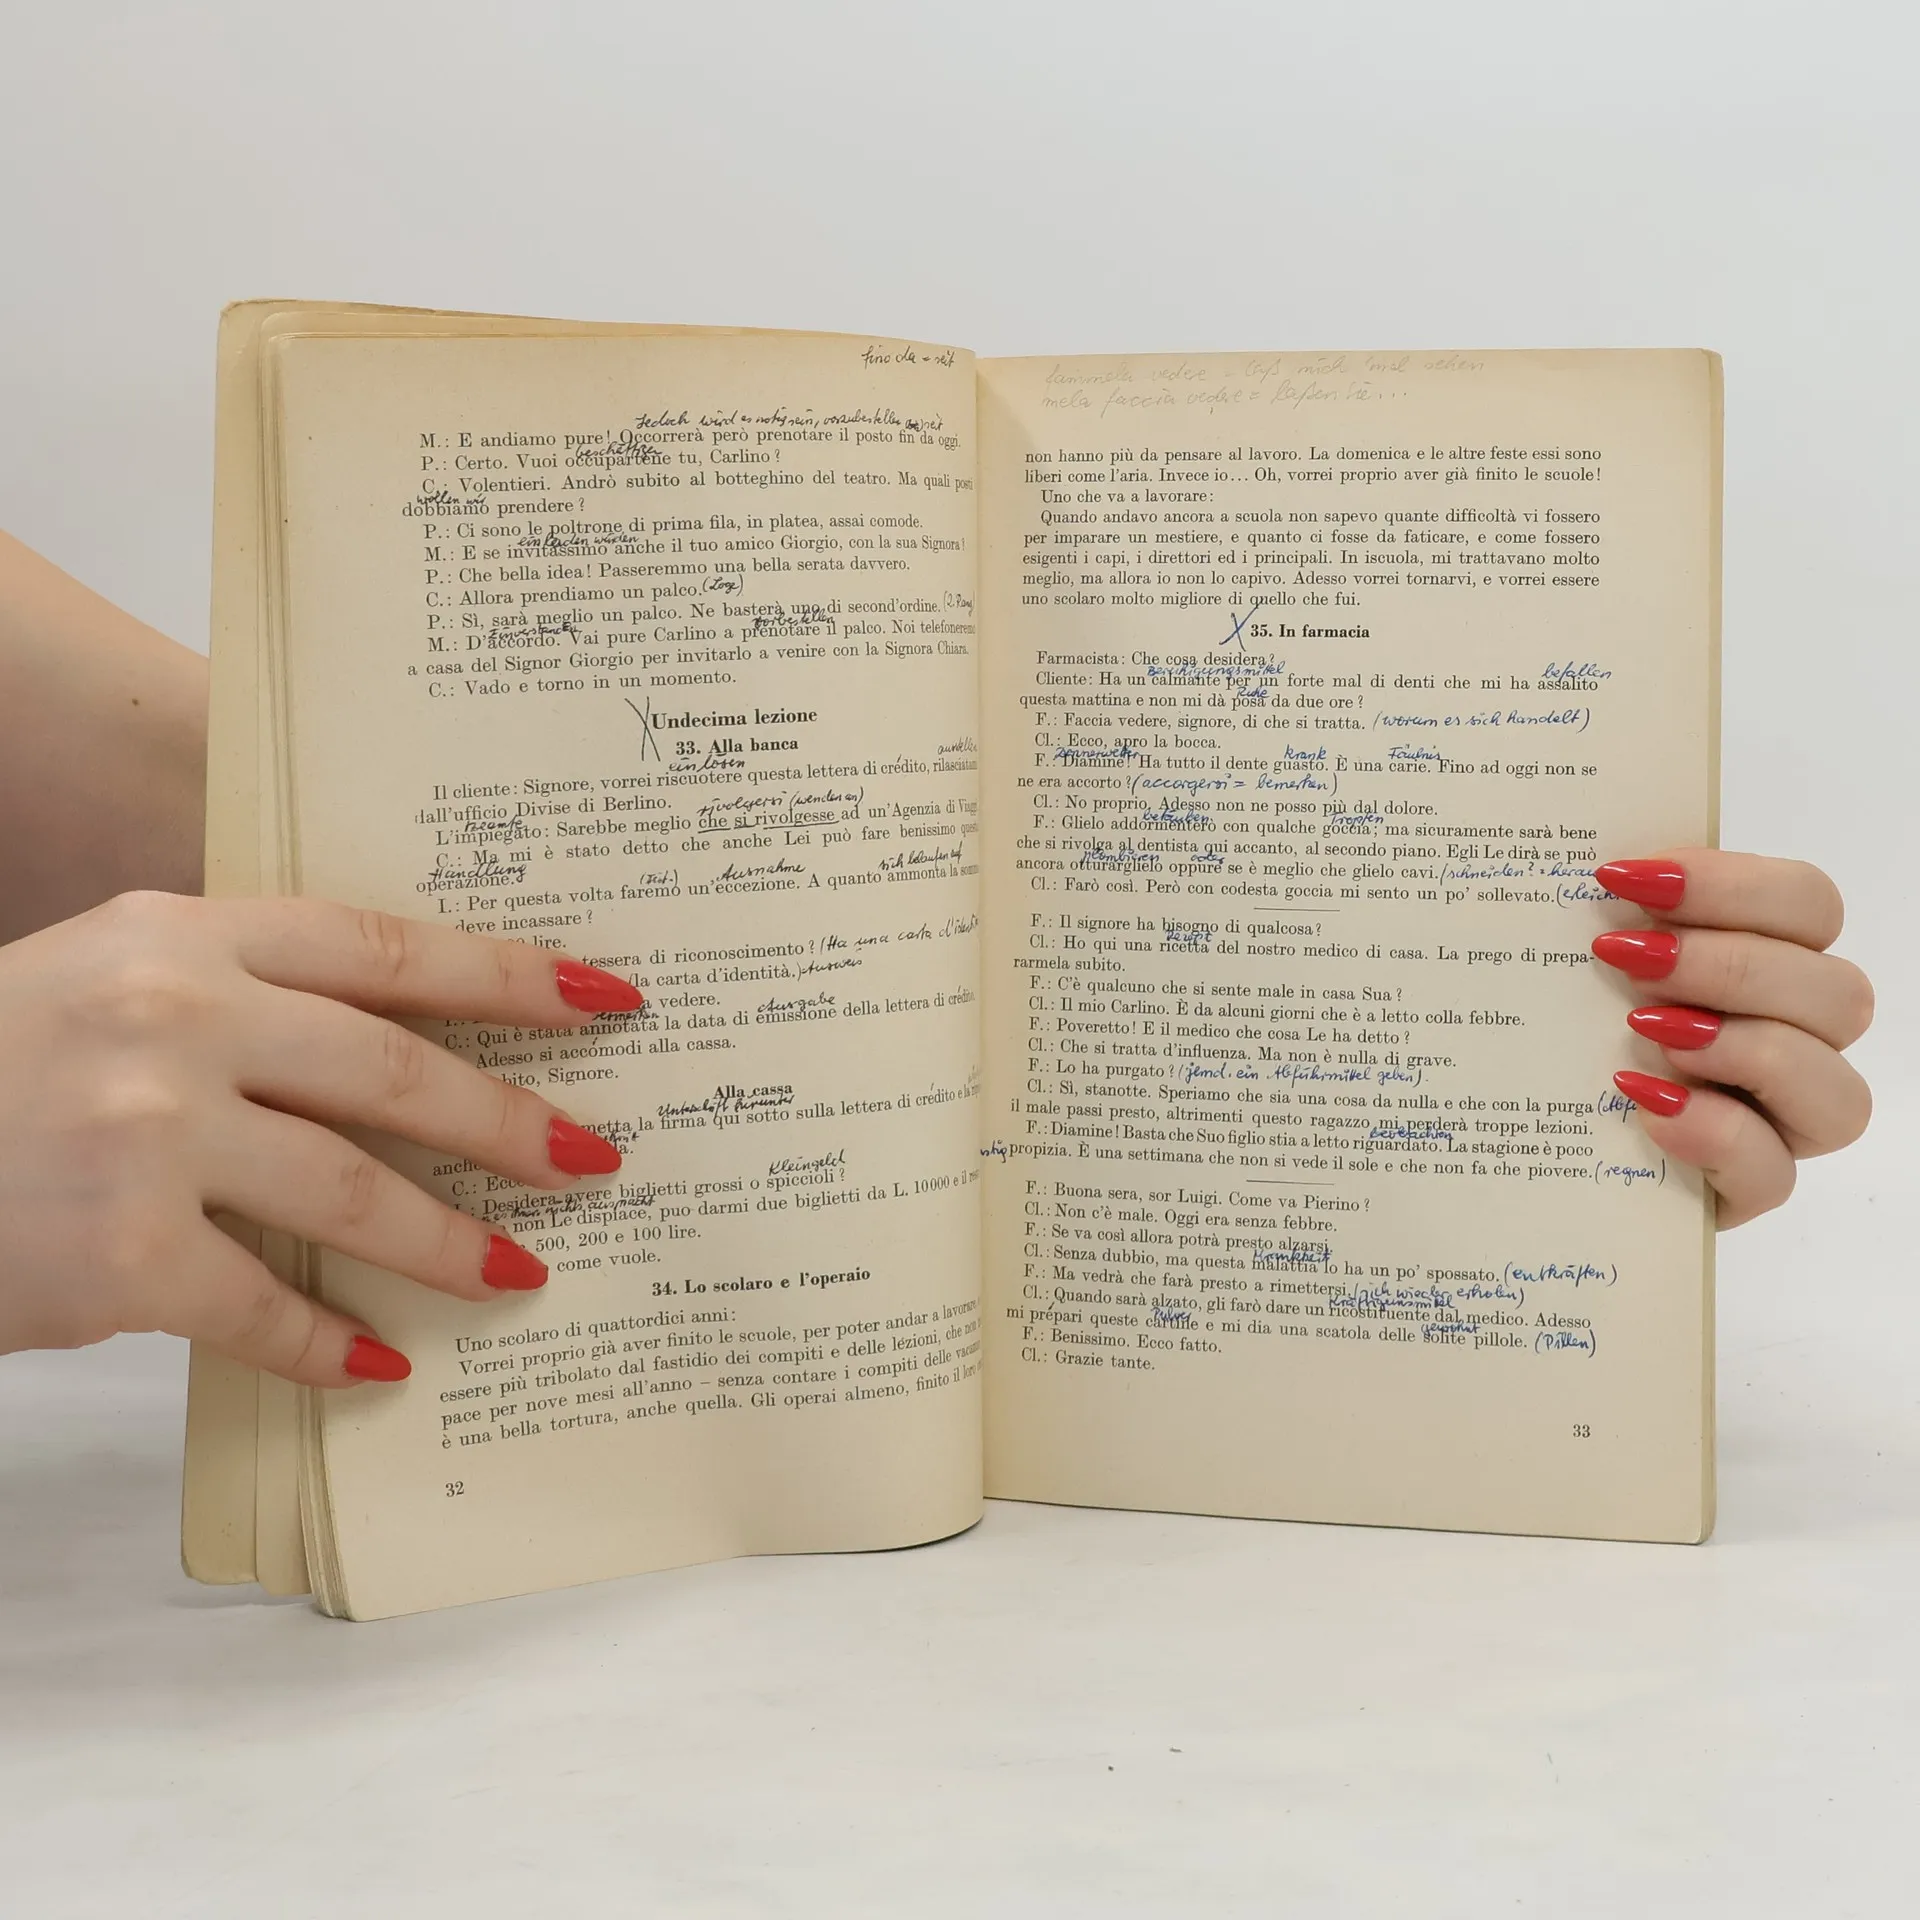 fino da = seit
Jedoch wird es nötig sein, vorzubestellen seit
M.: E andiamo pure! Occorrerà però prenotare il posto fin da oggi.
beschäftigen
P.: Certo. Vuoi occupartene tu, Carlino?
C.: Volentieri. Andrò subito al botteghino del teatro. Ma quali posti
wollen wir
dobbiamo prendere?
P.: Ci sono le poltrone di prima fila, in platea, assai comode.
einladen würden
M.: E se invitassimo anche il tuo amico Giorgio, con la sua Signora!
P.: Che bella idea! Passeremmo una bella serata davvero.
C.: Allora prendiamo un palco. (Loge)
P.: Sì, sarà meglio un palco. Ne basterà uno di second'ordine. (2. Rang)
Einverstanden vorbestellen
M.: D'accordo. Vai pure Carlino a prenotare il palco. Noi telefoneremo
a casa del Signor Giorgio per invitarlo a venire con la Signora Chiara.
C.: Vado e torno in un momento.
Undecima lezione
33. Alla banca
einlösen
Il cliente: Signore, vorrei riscuotere questa lettera di crédito, rilasciatami
dall'ufficio Divise di Berlino.
rivolgersi (wenden an)
Beamte
L'impiegato: Sarebbe meglio che si rivolgesse ad un'Agenzia di Viaggi
C.: Ma mi è stato detto che anche Lei può fare benissimo questa
Handlung
operazione.
(Fut.) Ausnahme sich belaufen auf
I.: Per questa volta faremo un'eccezione. A quanto ammonta la somma
deve incassare?
lire.
tessera di riconoscimento? (Ha una carta d'identità
/la carta d'identità.) Ausweis
a vedere.
vermerken Ausgabe
C.: Qui è stata annotata la data di emissione della lettera di crédito.
Adesso si accómodi alla cassa.
bito, Signore.
Alla cassa
Unterschrift hierunter
metta la firma qui sotto sulla lettera di crédito e la
anche
Kleingeld
C.: Ecco
I.: Desidera avere biglietti grossi o spiccioli?
non Le displace, puo darmi due biglietti da L. 10000 e il resto
500, 200 e 100 lire.
come vuole.
34. Lo scolaro e l'operaio
Uno scolaro di quattordici anni:
Vorrei proprio già aver finito le scuole, per poter andar a lavorare
essere più tribolato dal fastidio dei compiti e delle lezióni, che non
pace per nove mesi all'anno – senza contare i compiti delle vacanze
è una bella tortura, anche quella. Gli operai almeno, finito il loro
32
fammela vedere = laß mich mal sehen
mela faccia vedere = laßen Sie...
non hanno più da pensare al lavoro. La domenica e le altre feste essi sono
liberi come l'aria. Invece io... Oh, vorrei proprio aver già finito le scuole!
Uno che va a lavorare:
Quando andavo ancora a scuola non sapevo quante difficoltà vi fossero
per imparare un mestiere, e quanto ci fosse da faticare, e come fossero
esigenti i capi, i direttori ed i principali. In iscuola, mi trattavano molto
meglio, ma allora io non lo capivo. Adesso vorrei tornarvi, e vorrei essere
uno scolaro molto migliore di quello che fui.
35. In farmacia
Farmacista: Che cosa desidera?
Beruhigungsmittel befallen
Cliente: Ha un calmante per un forte mal di denti che mi ha assalito
Ruhe
questa mattina e non mi dà posa da due ore?
F.: Faccia vedere, signore, di che si tratta. (worum es sich handelt)
Cl.: Ecco, apro la bocca.
Donnerwetter krank Fäulnis
F.: Diamine! Ha tutto il dente guasto. È una carie. Fino ad oggi non se
ne era accorto? (accorgersi = bemerken)
Cl.: No proprio. Adesso non ne posso più dal dolore.
betäuben Tropfen
F.: Glielo addormenterò con qualche goccia; ma sicuramente sarà bene
che si rivolga al dentista qui accanto, al secondo piano. Egli Le dirà se può
plombieren oder
ancora otturarglielo oppure se è meglio che glielo cavi. (schneiden? = heraus
Cl.: Farò così. Però con codesta goccia mi sento un po' sollevato. (erleich
F.: Il signore ha bisogno di qualcosa?
Rezept
Cl.: Ho qui una ricetta del nostro medico di casa. La prego di prepa-
rarmela subito.
F.: C'è qualcuno che si sente male in casa Sua?
Cl.: Il mio Carlino. È da alcuni giorni che è a letto colla febbre.
F.: Poveretto! E il medico che cosa Le ha detto?
Cl.: Che si tratta d'influenza. Ma non è nulla di grave.
F.: Lo ha purgato? (jemd. ein Abführmittel geben).
Cl.: Sì, stanotte. Speriamo che sia una cosa da nulla e che con la purga (Abfü
il male passi presto, altrimenti questo ragazzo mi perderà troppe lezioni.
beobachten
F.: Diamine! Basta che Suo figlio stia a letto riguardato. La stagione è poco
propizia. È una settimana che non si vede il sole e che non fa che piovere. (regnen)
F.: Buona sera, sor Luigi. Come va Pierino?
Cl.: Non c'è male. Oggi era senza febbre.
F.: Se va così allora potrà presto alzarsi.
Krankheit
Cl.: Senza dubbio, ma questa malattia lo ha un po' spossato. (entkräften)
F.: Ma vedrà che farà presto a rimettersi. (sich wieder erholen)
Kräftigungsmittel
Cl.: Quando sarà alzato, gli farò dare un ricostituente dal medico. Adesso
Pulver gewohnt
mi prépari queste cartine e mi dia una scatola delle solite pillole. (Pillen)
F.: Benissimo. Ecco fatto.
Cl.: Grazie tante.
33